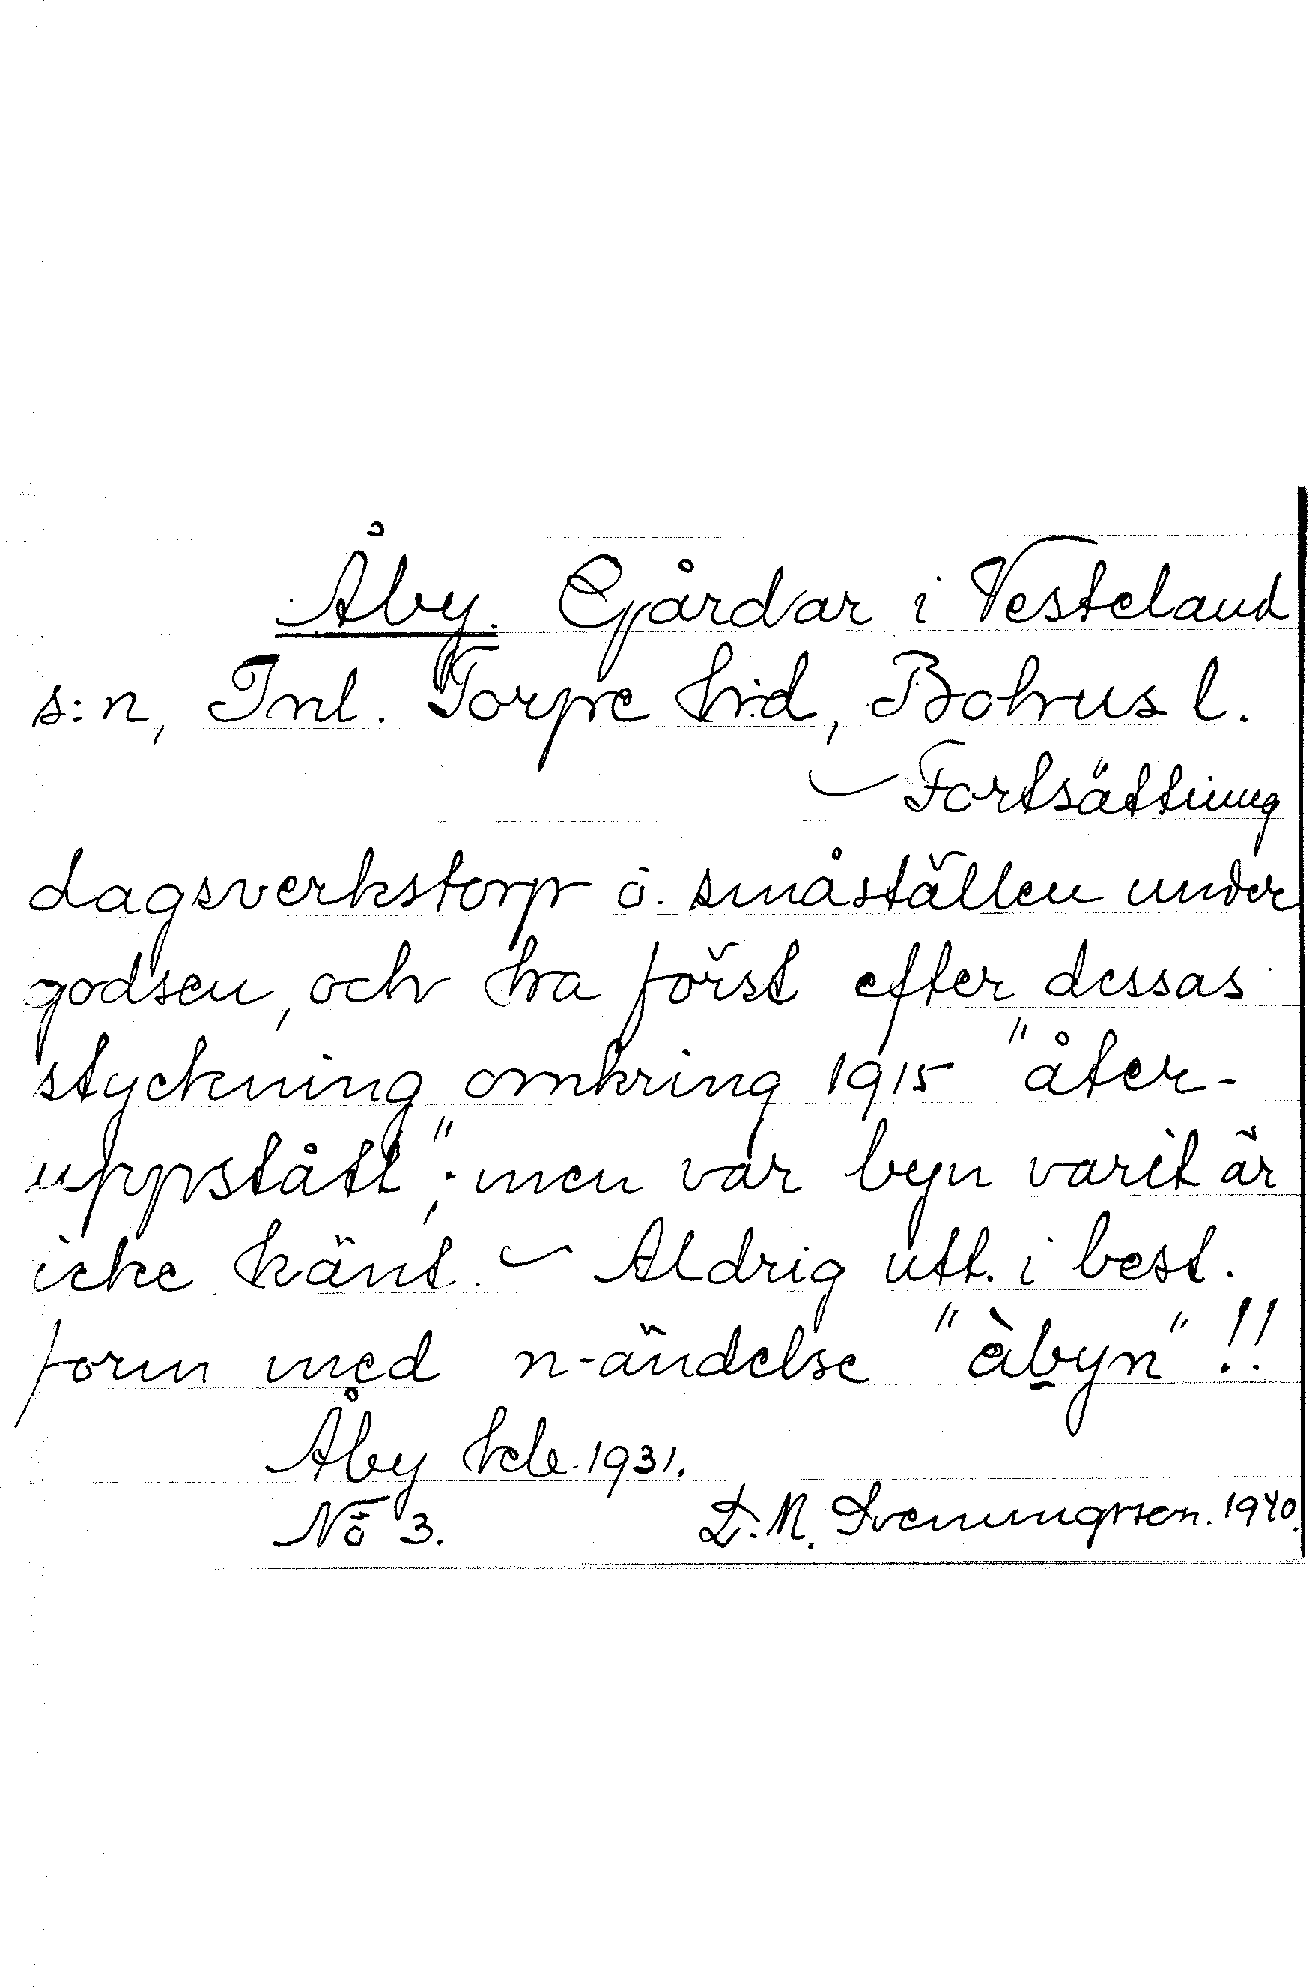 Åby. Gårdar i Vesteland
s:n, Inl. Torpe h:d, Bohus l.
– Fortsättning
dagsverkstorp o. småställen under
godsen, och ha först efter dessas
styckning omkring 1915 "åter-
uppstått"; men var byn varit är
icke känt. – Aldrig utt. i best.
form med n-ändelse "àbyn" !!
Åby kcb. 1931.
No 3. D. M. Svenungsson. 1940.